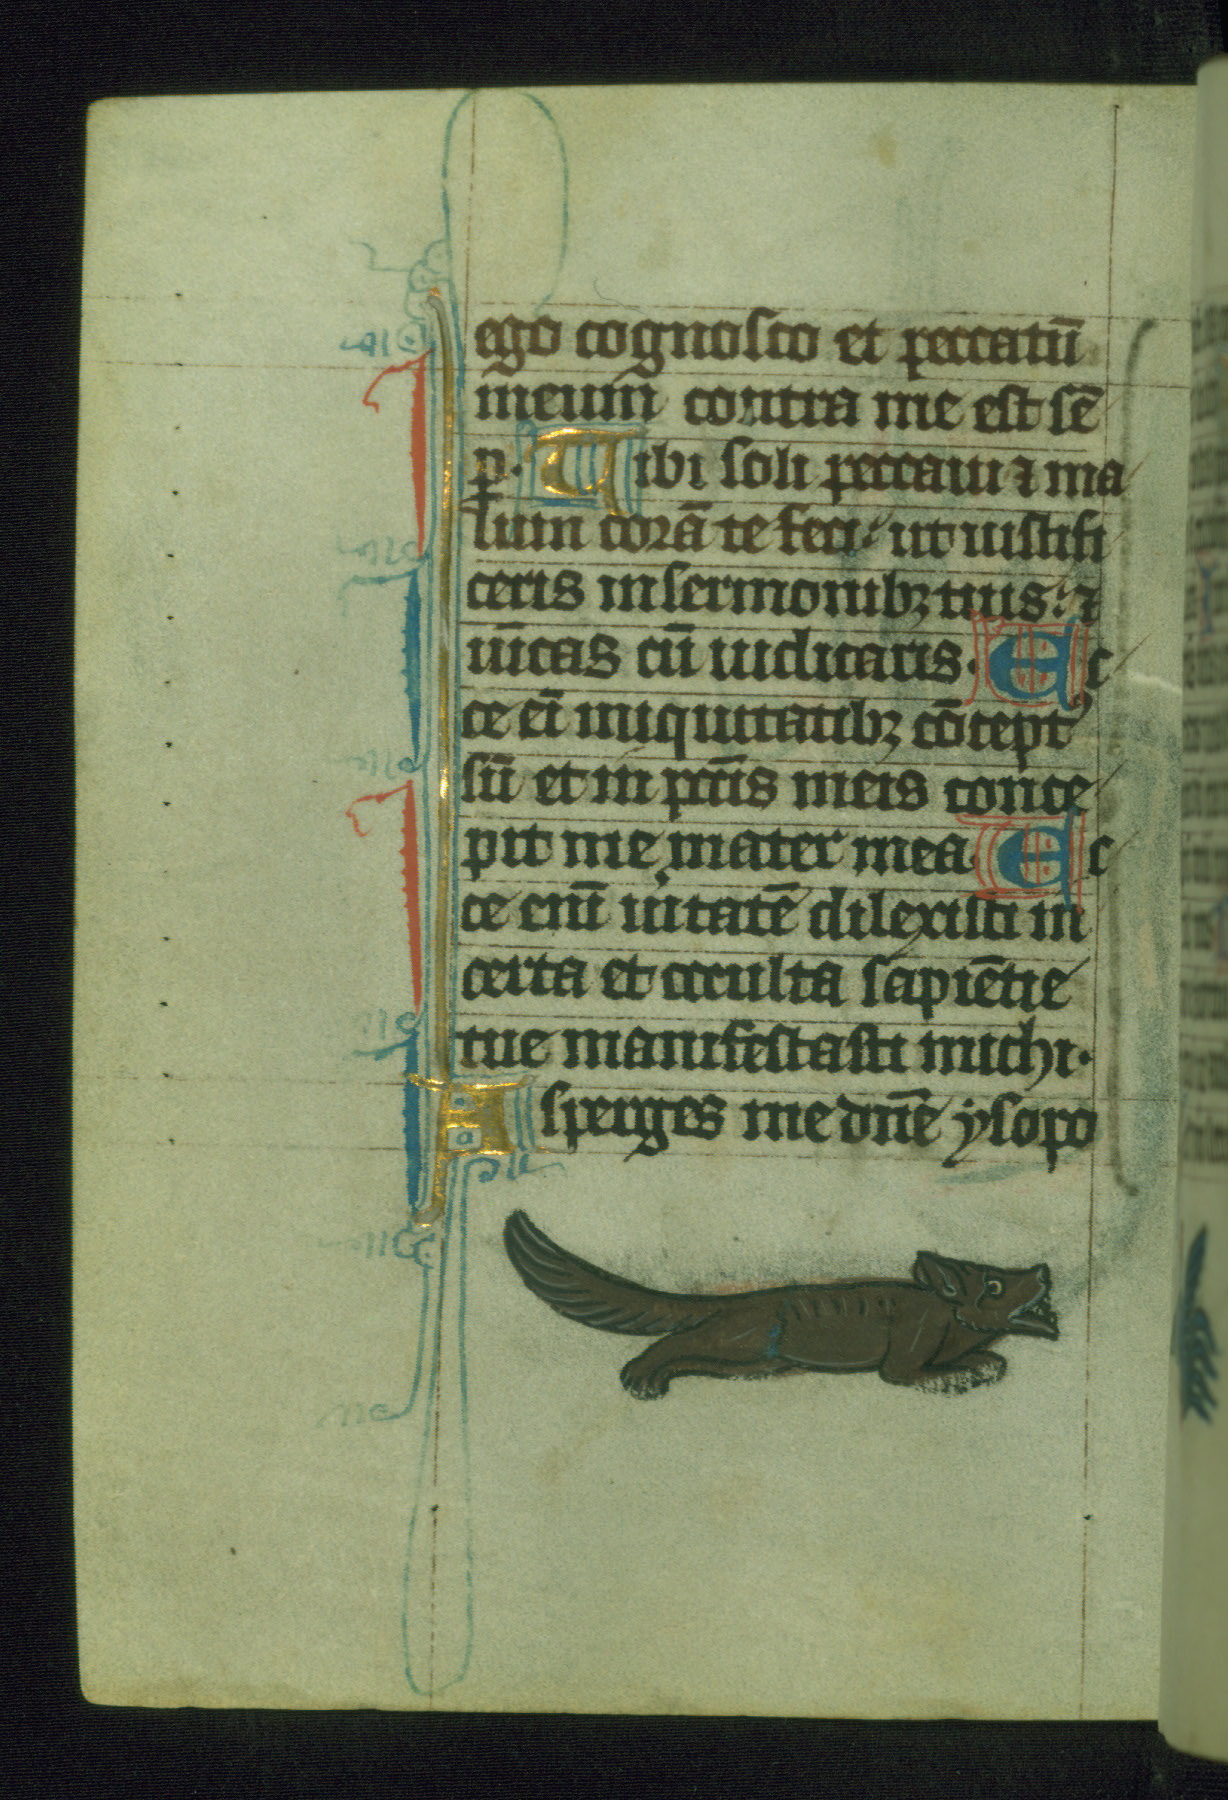 ego cognosco et peccatū
meum contra me est sē
p. Tibi soli peccaui ⁊ ma
lum corā te feci: ut iustifi
ceris in sermonibꝫ tuis: ⁊
uīcas cū iudicaris. Ec
ce eī iniquitatibꝫ cōcept⁹
sū et in pctīs meis conce
pit me mater mea. Ec
ce enī uītatē dilexisti in
certa et occulta sapiētie
tue manifestasti michi.
Asperges me dn̄e ysopo